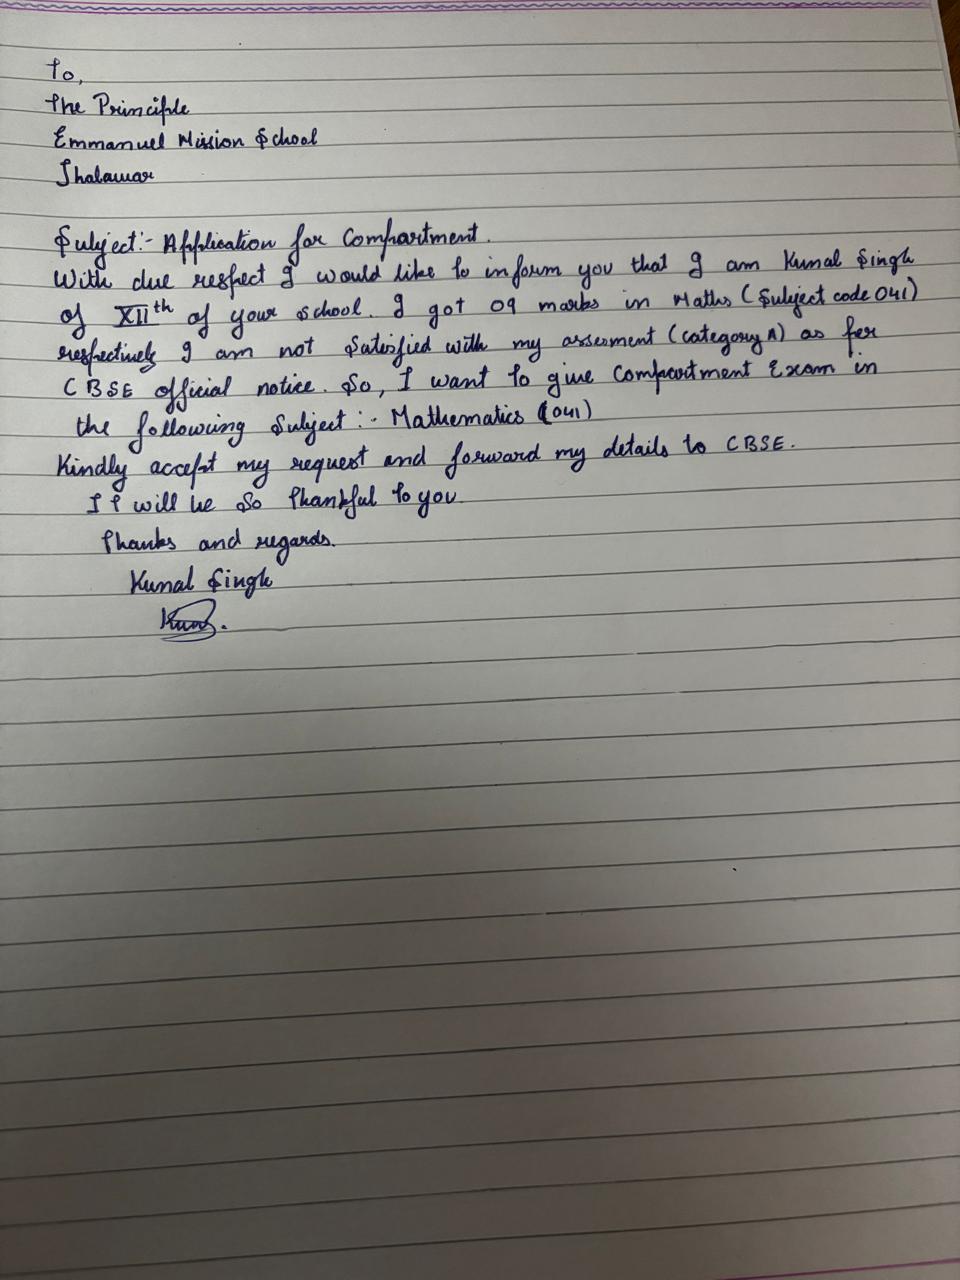 To,
The Principle
Emmanuel Mission School
Jhalawar
Subject:- Application for Compartment.
With due respect I would like to inform you that I am Kunal Singh
of XIIth of your school. I got 09 marks in Maths (Subject code 041)
respectively I am not Satisfied with my assesment (category A) as per
CBSE official notice. So, I want to give Compartment Exam in
the following Subject :- Mathematics (041)
Kindly accept my request and forward my details to CBSE.
I will be so Thankful to you
Thanks and regards.
Kunal Singh